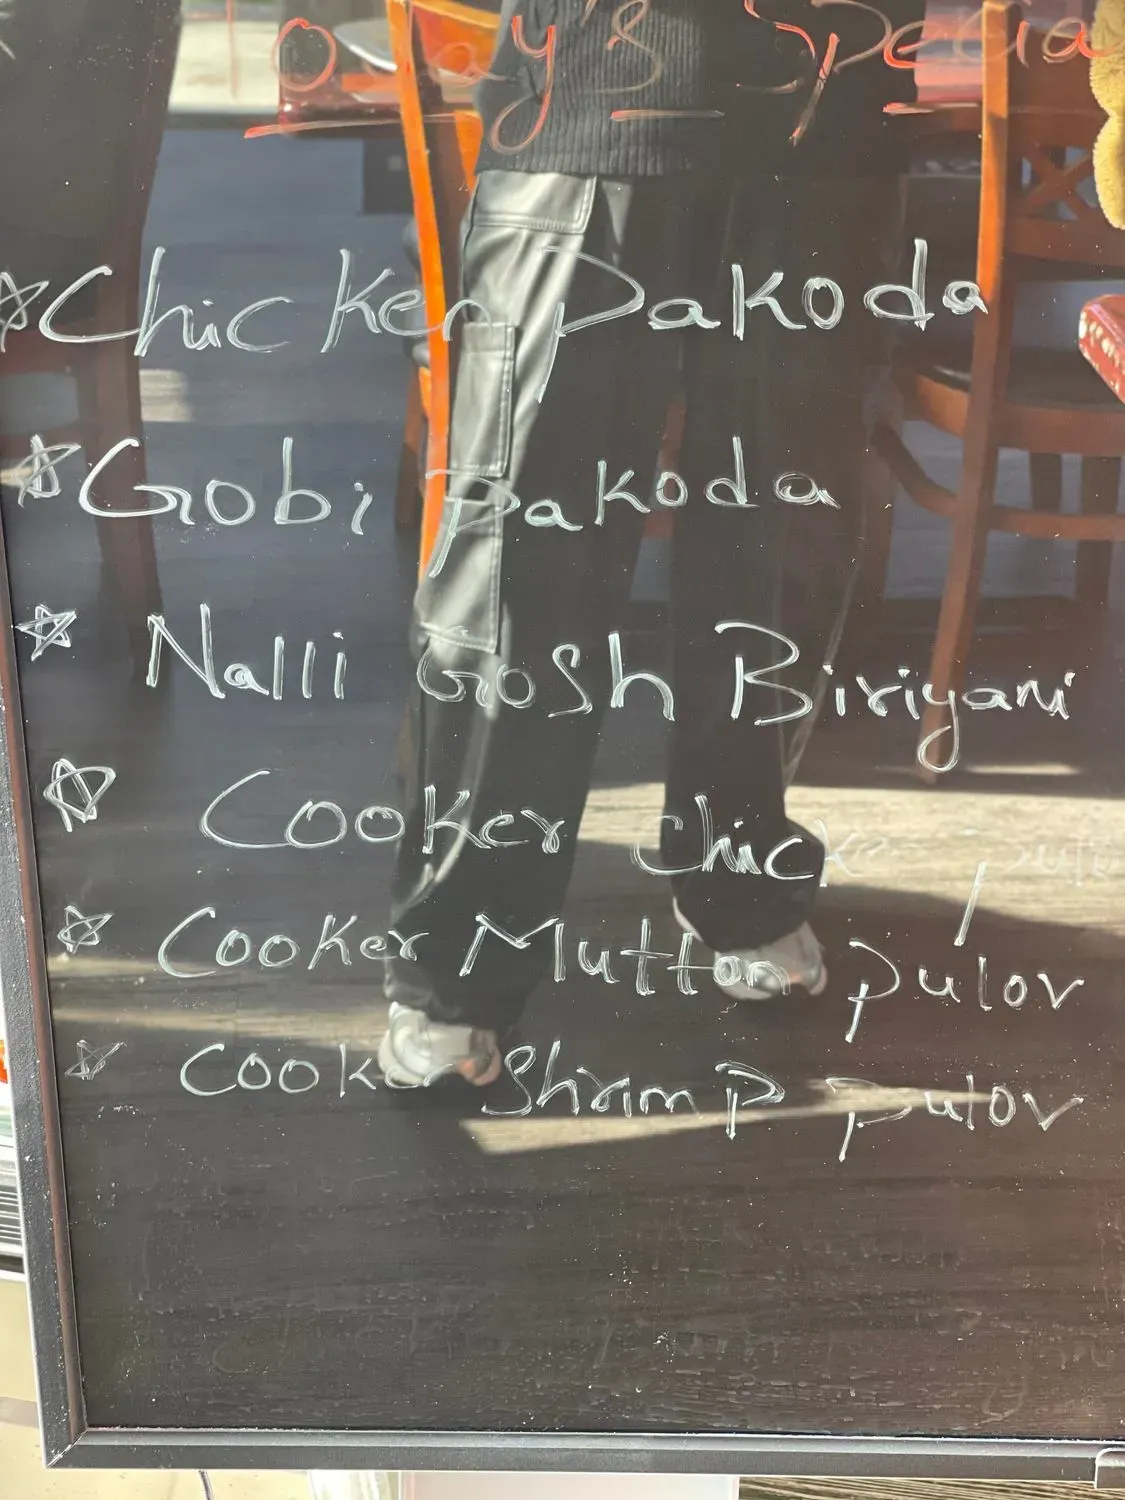 oday's Specia
Chicken Pakoda
Gobi Pakoda
Nalli Gosh Biriyani
Cooker Chicken pulo
Cooker Mutton pulov
Cooker Shrimp pulov